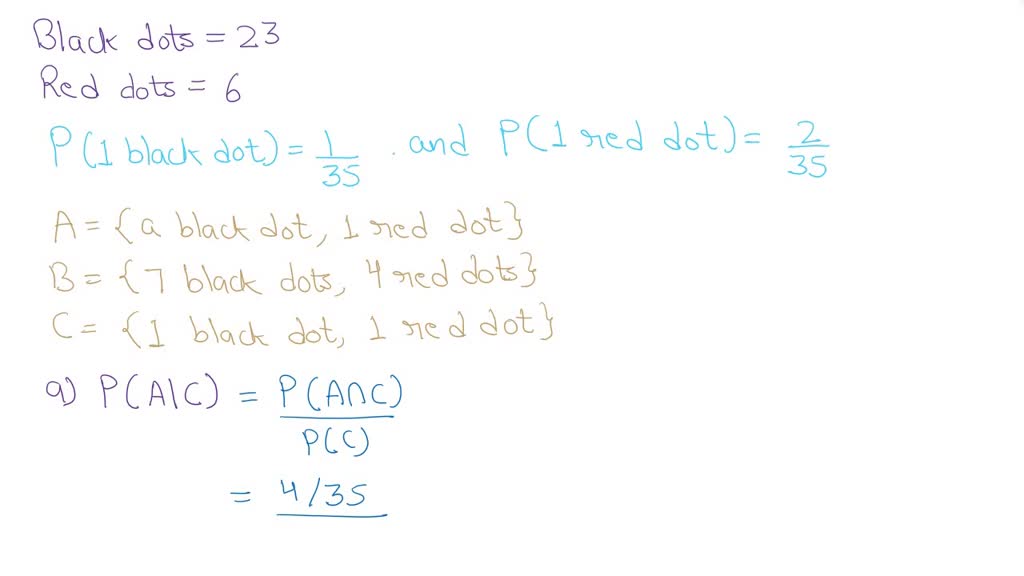 Black dots = 23
Red dots = 6
P(1 black dot) = 1/35 . and P(1 red dot) = 2/35
A = {a black dot, 1 red dot}
B = {7 black dots, 4 red dots}
C = {1 black dot, 1 red dot}
a) P(A|C) = P(A∩C)/P(C)
= 4/35